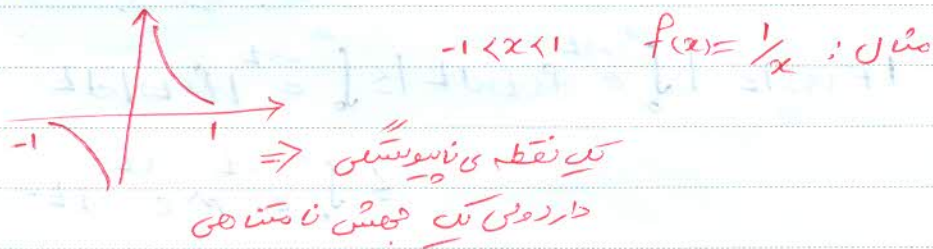 مثال: f(x)= 1/x -1<x<1
-1 1
⇐ یک نقطه ی ناپیوستگی
دارد ولی یک جهش نامتناهی